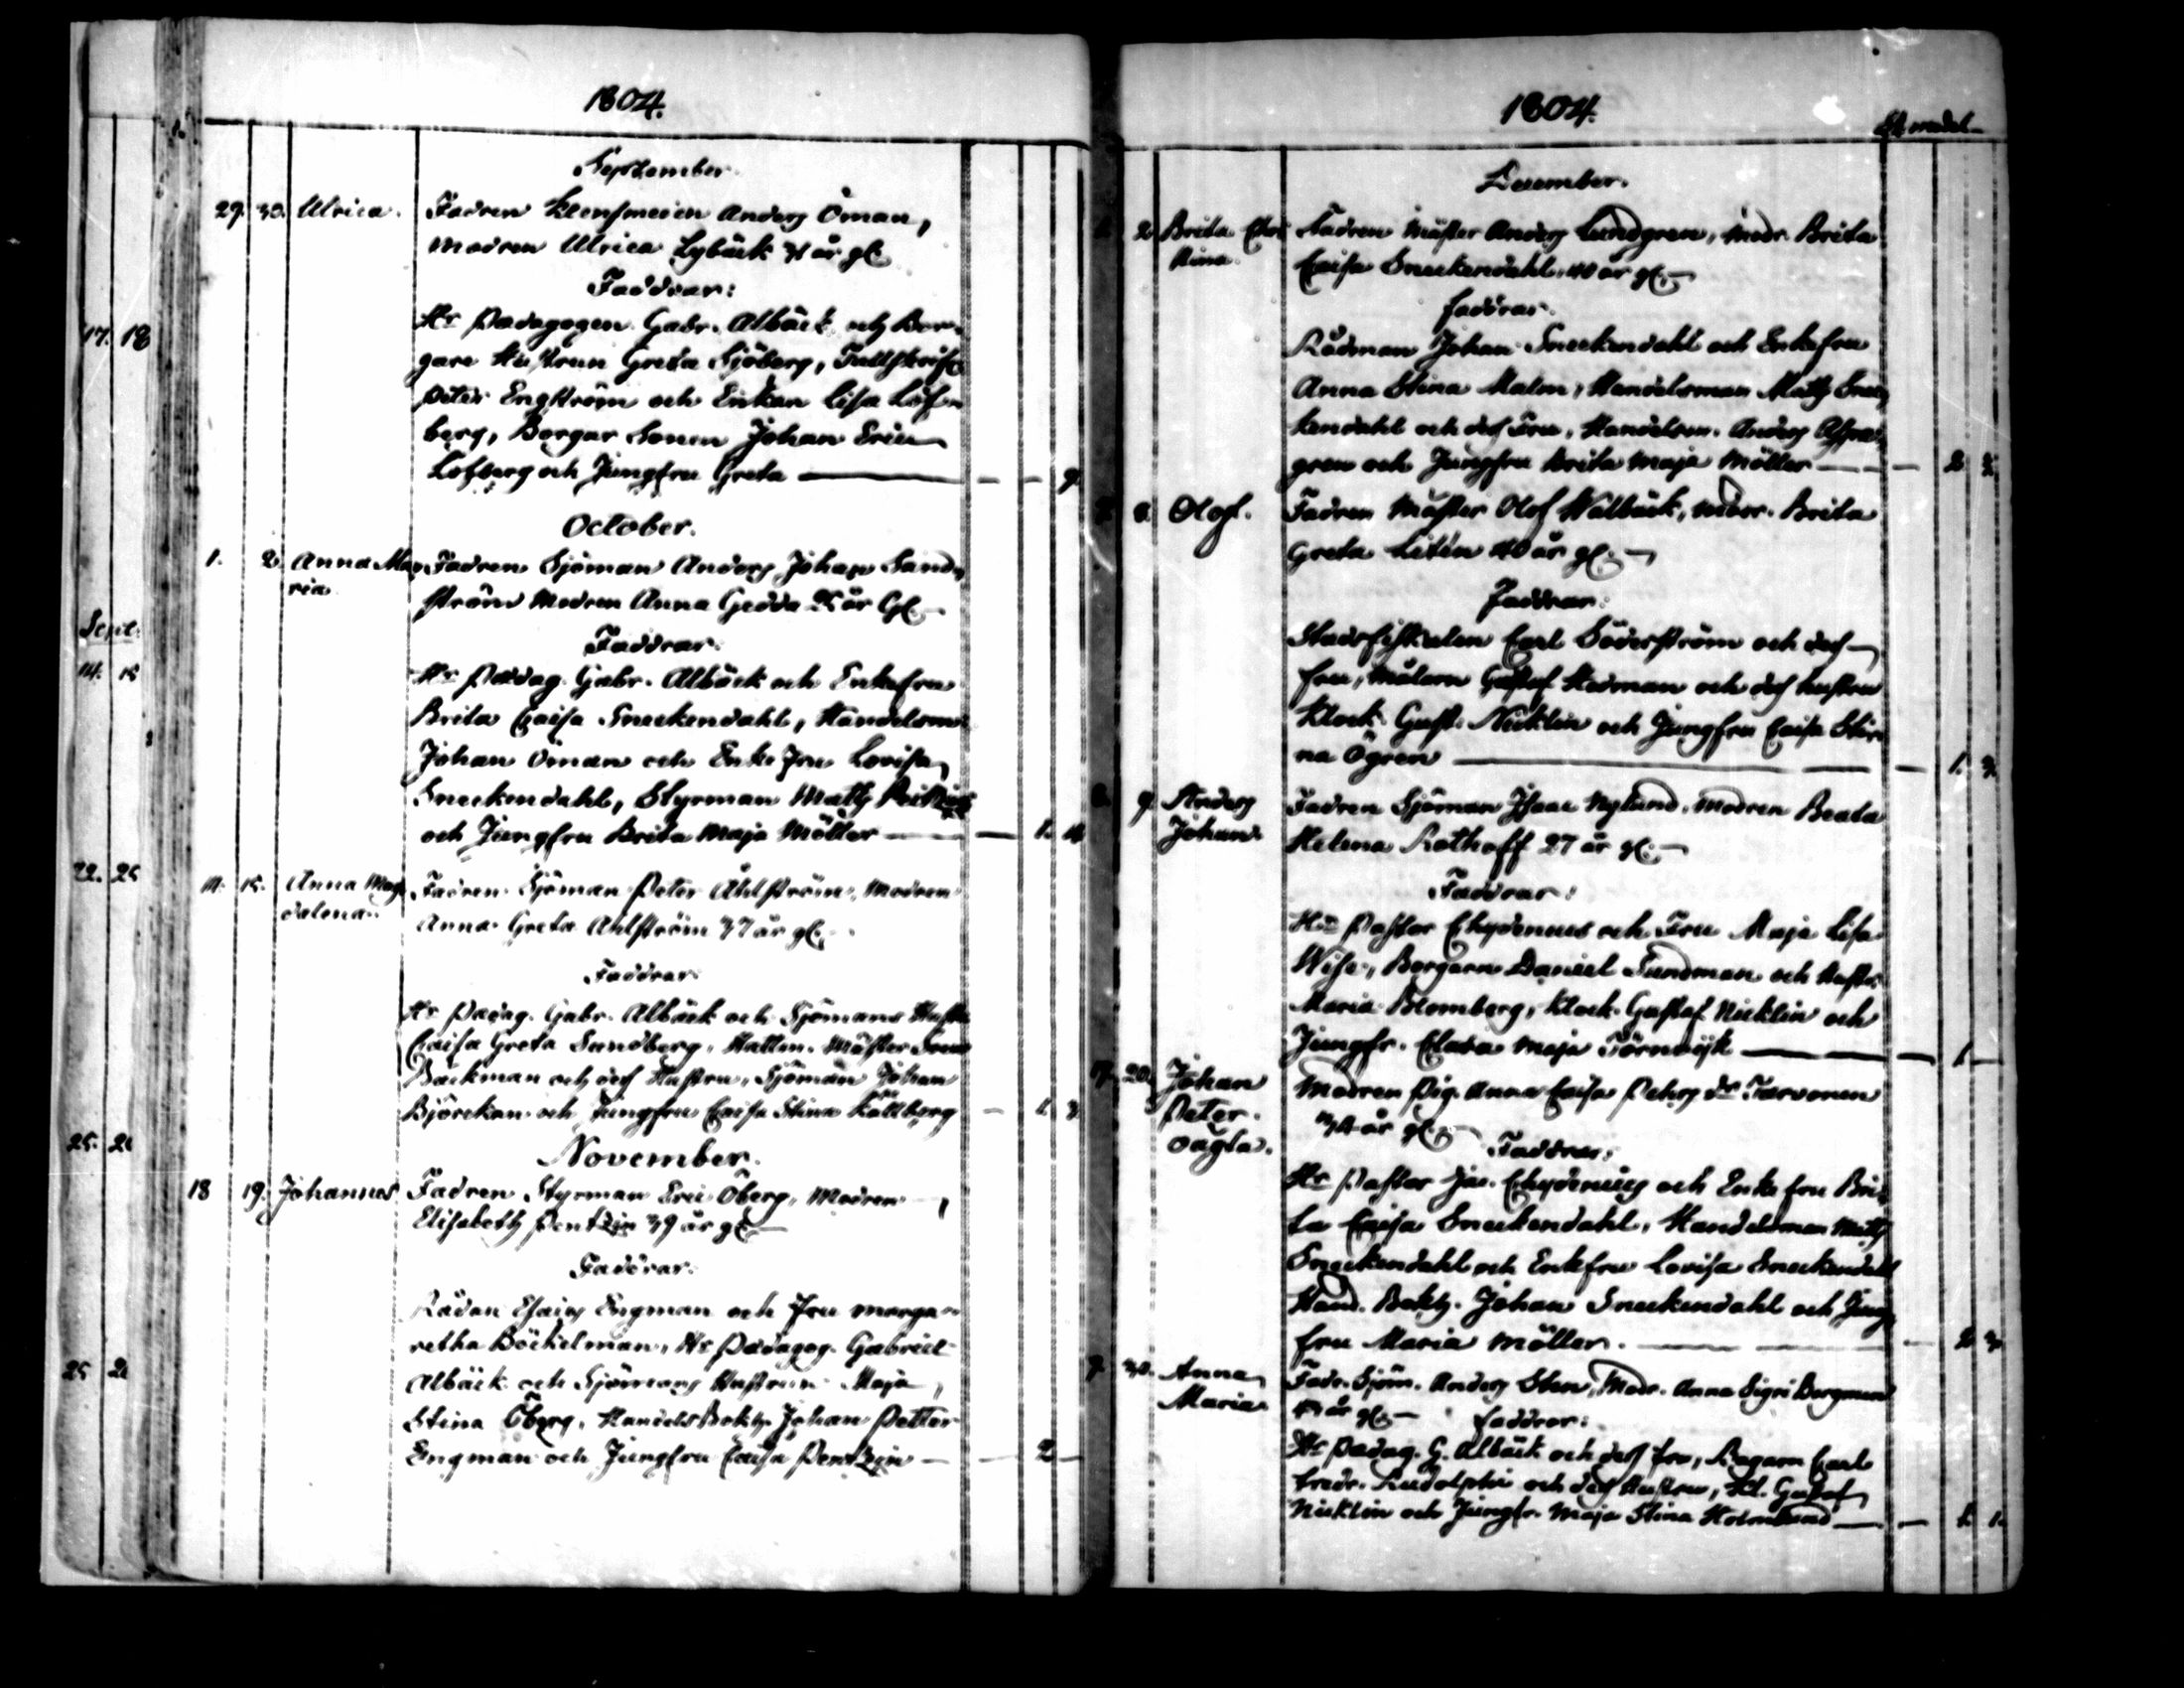 1804.
September.
29. 30. Ulrica. Fadren Klensmeden Anders Öman,
Modren Ulrica Lybäck 31 år gl.
Faddrar:
Hr Pædagogen Gabr. Albäck och Bor-
gare Hustrun Greta Sjöberg, Tullskrif.
Peter Engström och Enkan Lisa Löf-
berg, Borgar Sonen Johan Eric
Lofberg och Jungfru Greta — 9.
17. 18
October.
1. 2. Anna Ma- Fadren Sjöman Anders Johan Sand-
ria ström Modren Anna Gedda 25 år Gl.
Sept.
Faddrar:
14. 15 Hr Pædag. Gabr. Albäck och Enkefru
Brita Caisa Sneckendahl, Handelsm.
Johan Öman och Enke Fru Lovisa
Sneckendahl, Styrman Matts
och Jungfru Brita Maja Möller — 1. 4
22. 25
14. 15. Anna Mag- Fadren Sjöman Peter Åhlström, Modren
dalena. Anna Greta Åhlström 37 år gl.
Faddrar:
Hr Pædag. Gabr. Albäck och Sjömans Hustr.
Caisa Greta Sundberg, Hattm. Mäster
Bäckman och dess Hustru, Sjöman Johan
Björckan och Jungfru Caisa Stina Källberg — 1. 3
25. 26
November.
18 19. Johannes Fadren Styrman Eric Öberg, Modren
Elisabeth Pentzin 39 år gl.
Faddrar:
Rådm Esaias Engman och Fru Marga-
retha Böckelman, Hr Pædagog. Gabriel
25 26 Albäck och Sjömans Hustrun Maja
Stina Öberg, Handels Bokh. Johan Petter
Engman och Jungfru Caisa Pentzin — 2 —
1804.
December.
2. Brita Chri- Fadren Mäster Anders Lundgren, Modr. Brita
stina Caisa Sneckendahl, 40 år gl.
faddrar.
Rådman Johan Sneckendahl och Enkefru
Anna Stina Malm, Handelsman Matts Snec-
kendahl och dess Fru, Handelsm. Anders
gren och Jungfru Brita Maja Möller — 2
8. Olof. Fadren Mäster Olof Wälbäck, Modr. Brita
Greta Litén 40 år gl.
Faddrar:
Stadsfiskalen Carl Söderström och dess
fru, Målarn Gustaf Hedman och dess hustru
Klock. Gust. Nicklin och Jungfru Caisa Sti-
na Ögren — 1. 3.
9. Anders Fadren Sjöman Isaac Nylund. Modren Beata
Johan Helena Rothoff 27 år gl.
Faddrar:
Hr Pastor Chydenius och Fru Maja Lisa
Borgarn Daniel Sundman och Hustr.
Maria Blomberg, Klock. Gustaf Nicklin och
Jungfr. Clara Maja Törnwijk — 1 —
19. 20. Johan Modren Pig. Anna Caisa Pehrs dr Tarvonen
Peter. 34 år gl. Faddrar:
oägta. Hr Pastor Jac. Chydenius och Enke fru Bri-
ta Caisa Sneckendahl, Handelsman Matts
Sneckendahl och Enkefru Lovisa Sneckendahl
Hand. Bokh. Johan Sneckendahl och Jung-
fru Maria Möller. — 2 3.
30. Anna Fadr. Sjöm. Anders Sten, Modr. Anna Sigri Bergman
Maria år gl. faddrar:
Hr Pædag. G. Albäck och dess fru, Bagarn Carl
Fredr. Rudolphi och dess Hustru, Kl. Gustaf
Nicklin och Jungfr. Maja Stina Holmlund — 1. 1.